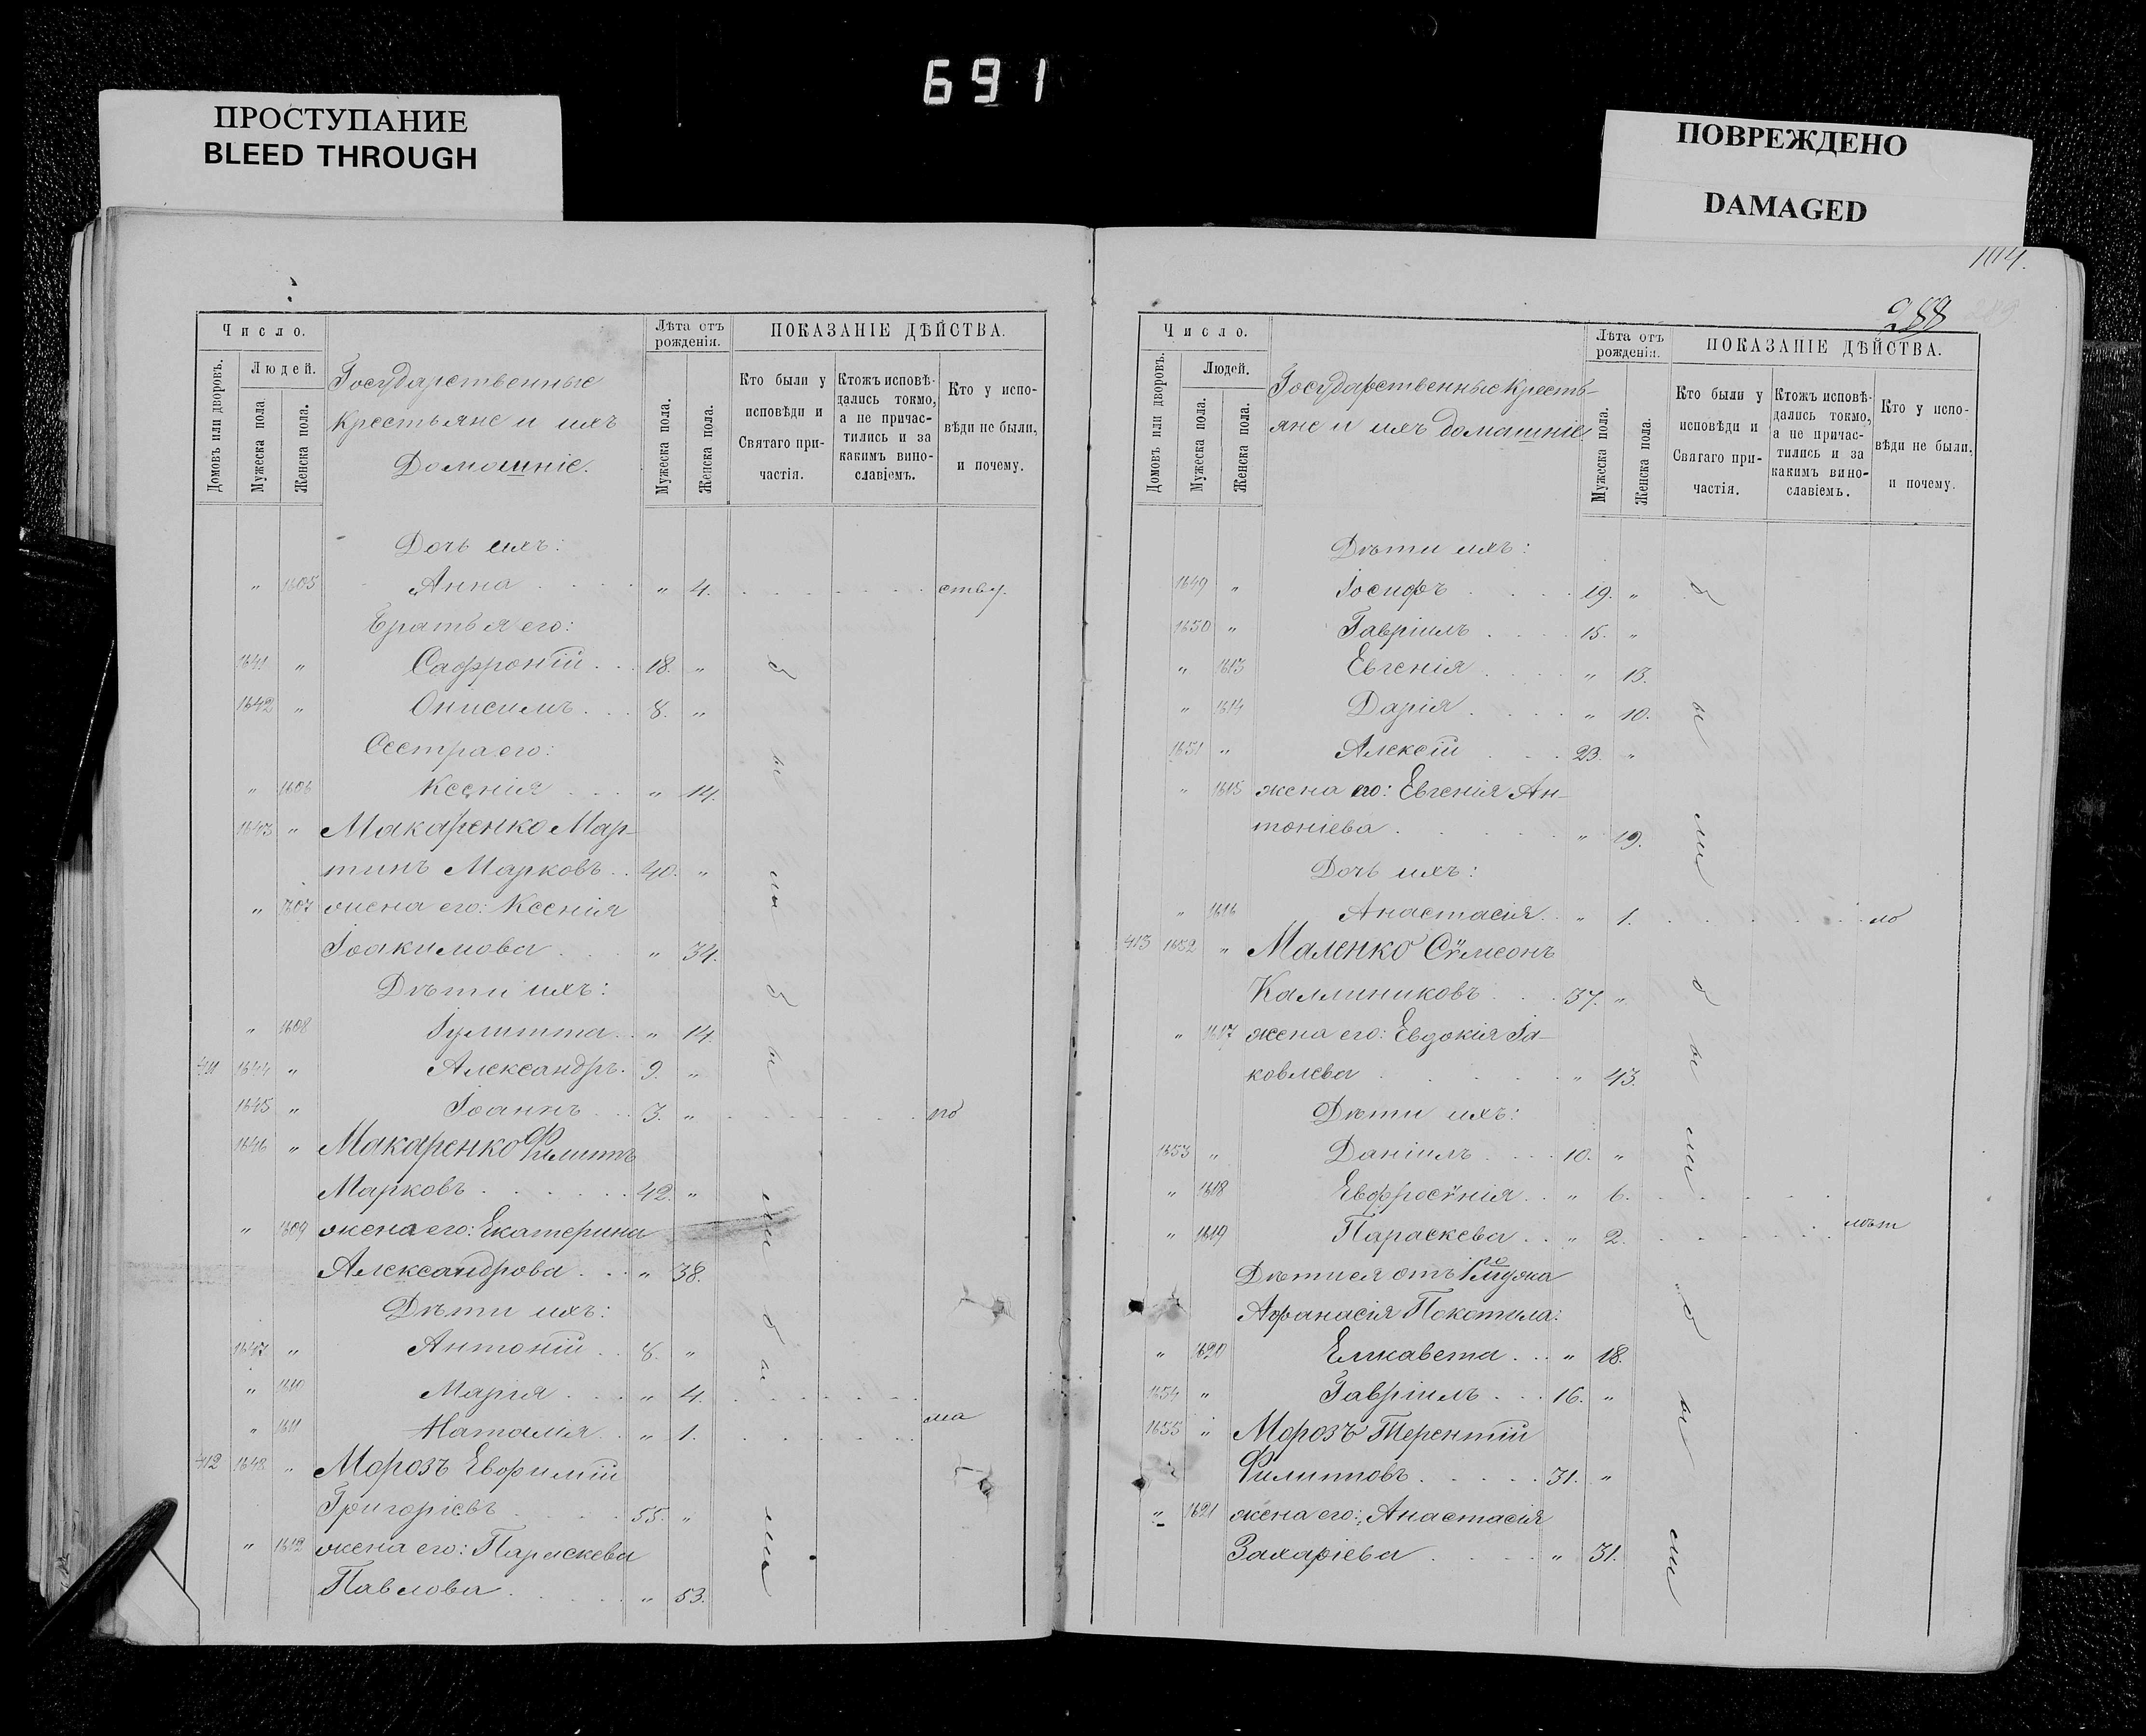 691
ПРОСТУПАНИЕ
BLEED THROUGH
ПОВРЕЖДЕНО
DAMAGED
Число.
Домовъ или дворовъ.
Людей.
Мужеска пола.
Женска пола.
Государственные
крестьяне и ихъ
Домашніе.
Лѣта отъ рожденія.
Мужеска пола.
Женска пола.
ПОКАЗАНІЕ ДѢЙСТВА.
Кто были у исповѣди и Святаго причастія.
Ктожъ исповѣдались токмо, а не причастились и за какимъ винославіемъ.
Кто у исповѣди не были, и почему.
Дочь ихъ:
" 1605 Анна " 4. ству.
Братья его:
1641 " Сафроній 18. "
1642 " Онисимъ 8. "
Сестра его:
" 1606 Ксенія " 14.
1643 " Макаренко Мар-
тинъ Марковъ 40. "
" 1607 жена его: Ксенія
Іоакимова " 34.
Дѣти ихъ:
" 1608 Іулитта " 14.
411 1644 " Александръ 9. "
1645 " Іоаннъ 3. " по
1646 " Макаренко Филиппъ
Марковъ 42. "
" 1609 жена его: Екатерина
Александрова " 38.
Дѣти ихъ:
1647 " Антоній 8. "
" 1610 Марія " 4.
" 1611 Наталія " 1. ма
412 1648 " Морозъ Евфимій
Григорієвъ 55. "
" 1612 жена его: Параскева
Павлова " 53.
бы
ли
бы
ли
бы
ли
104.
288
Число.
Домовъ или дворовъ.
Людей.
Мужеска пола.
Женска пола.
Государственные кресть-
яне и ихъ домашніе
Лѣта отъ рожденія.
Мужеска пола.
Женска пола.
ПОКАЗАНІЕ ДѢЙСТВА.
Кто были у исповѣди и Святаго причастія.
Ктожъ исповѣдались токмо, а не причастились и за какимъ винославіемъ.
Кто у исповѣди не были, и почему.
Дѣти ихъ:
1649 " Іосифъ 19. "
1650 " Гавріилъ 15. "
" 1613 Евгенія " 13.
" 1614 Дарія " 10.
1651 " Алексій 23. "
" 1615 жена его: Евгенія Ан-
тоніева " 19.
Дочь ихъ:
" 1616 Анастасія " 1. ло
413 1652 " Маленко Сѵмеонъ
Каллиниковъ 37. "
" 1617 жена его: Евдокія Іа-
ковлева " 43.
Дѣти ихъ:
1653 " Даніилъ 10. "
" 1618 Евфросѵнія " 6.
" 1619 Параскева " 2. лѣт
Дѣти ея отъ 1го мужа
Афанасія Покотила:
" 1620 Елисавета " 18.
1654 " Гавріилъ 16. "
1655 " Морозъ Терентій
Филипповъ 31. "
" 1621 жена его: Анастасія
Захаріева " 31.
бы
ли
бы
ли
бы
ли